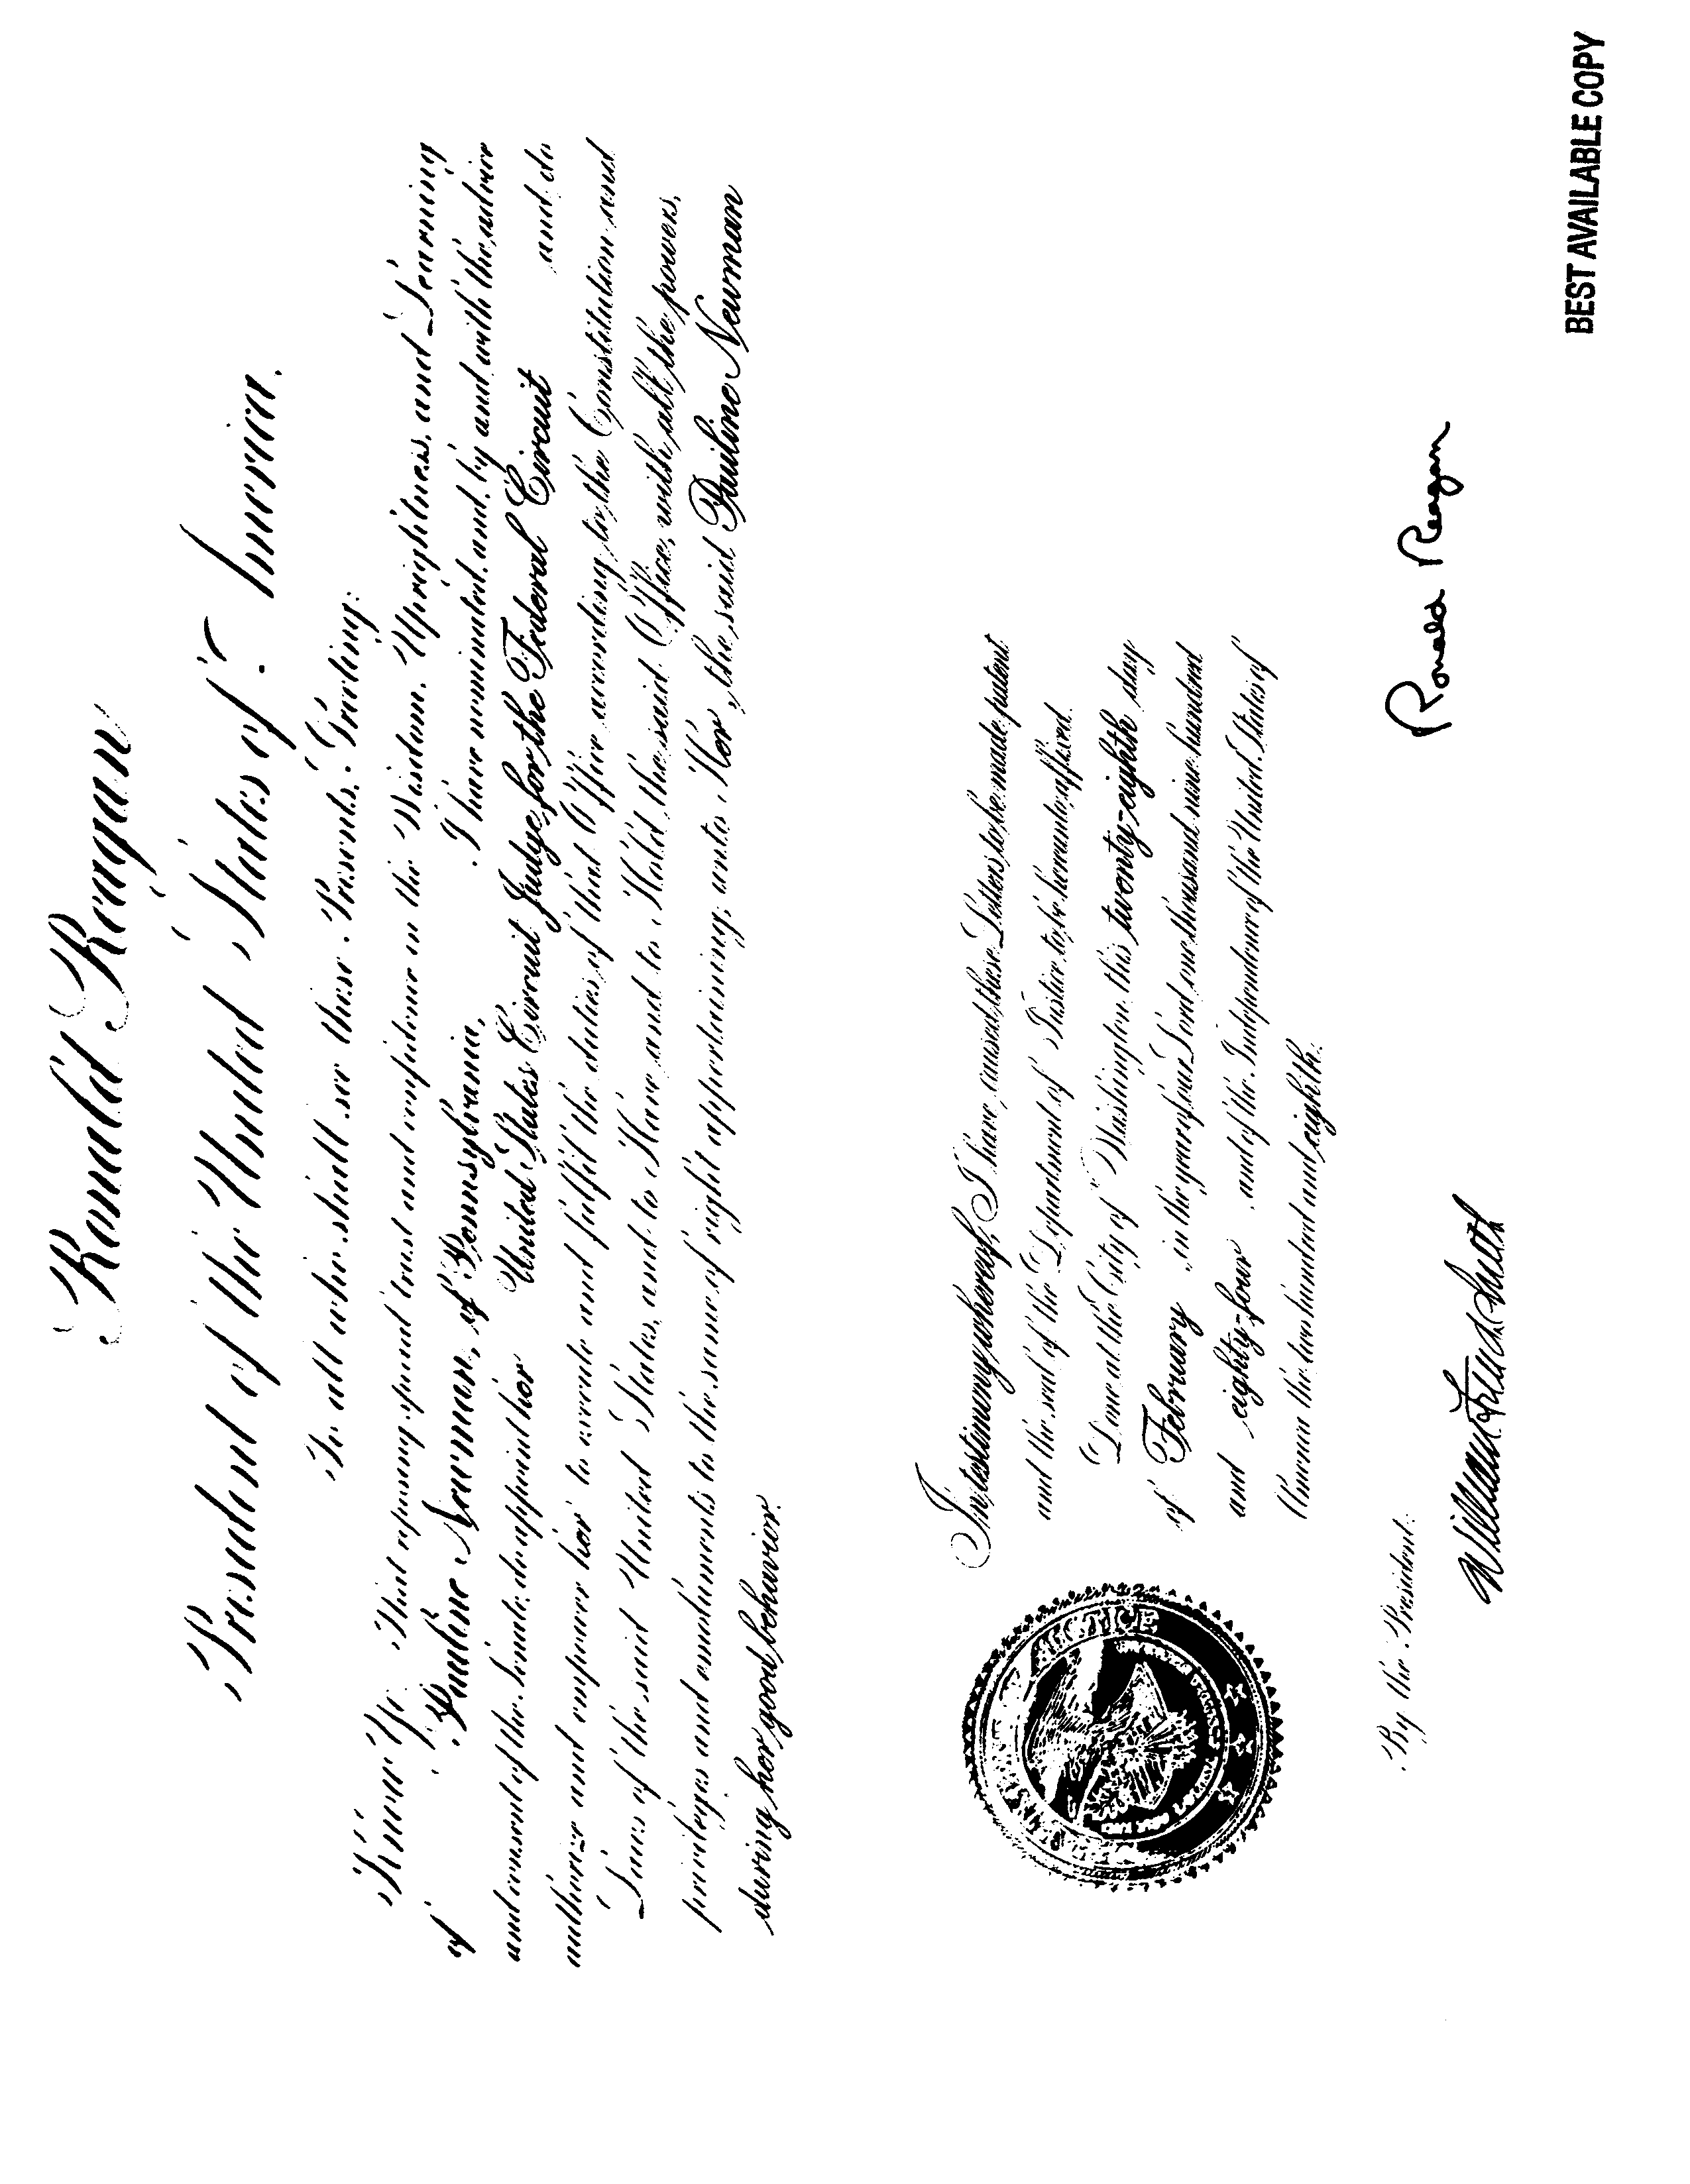 Ronald Reagan
President of the United States of America.
To all who shall see these Presents, Greeting:
Know Ye; That reposing special trust and confidence in the Wisdom, Uprightness, and Learning
of Pauline Newman, of Pennsylvania, I have nominated, and, by and with the advice
and consent of the Senate, do appoint her United States Circuit Judge for the Federal Circuit and do
authorize and empower her to execute and fulfil the duties of that Office according to the Constitution and
Laws of the said United States, and to Have and to Hold the said Office, with all the powers,
privileges and emoluments to the same of right appertaining, unto Her, the said Pauline Newman
during her good behavior.
In testimony whereof, I have caused these Letters to be made patent
and the seal of the Department of Justice to be hereunto affixed.
Done at the City of Washington this twenty-eighth day
of February in the year of our Lord one thousand nine hundred
and eighty-four, and of the Independence of the United States of
America the two hundred and eighth.
Ronald Reagan
By the President:
William French Smith
JUSTICE
BEST AVAILABLE COPY